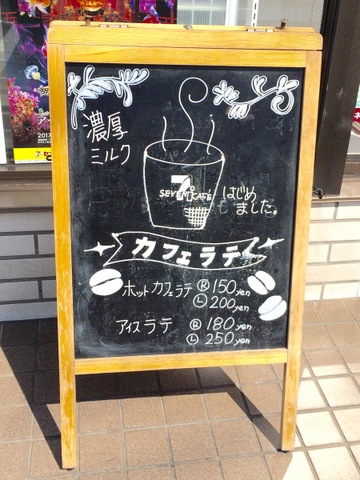 濃厚
ミルク
7
SEVEN CAFÉ
はじめ
ました。
カフェラテ
ホットカフェラテ Ⓡ 150yen
Ⓛ 200yen
アイスラテ Ⓡ 180yen
Ⓛ 250yen
2017